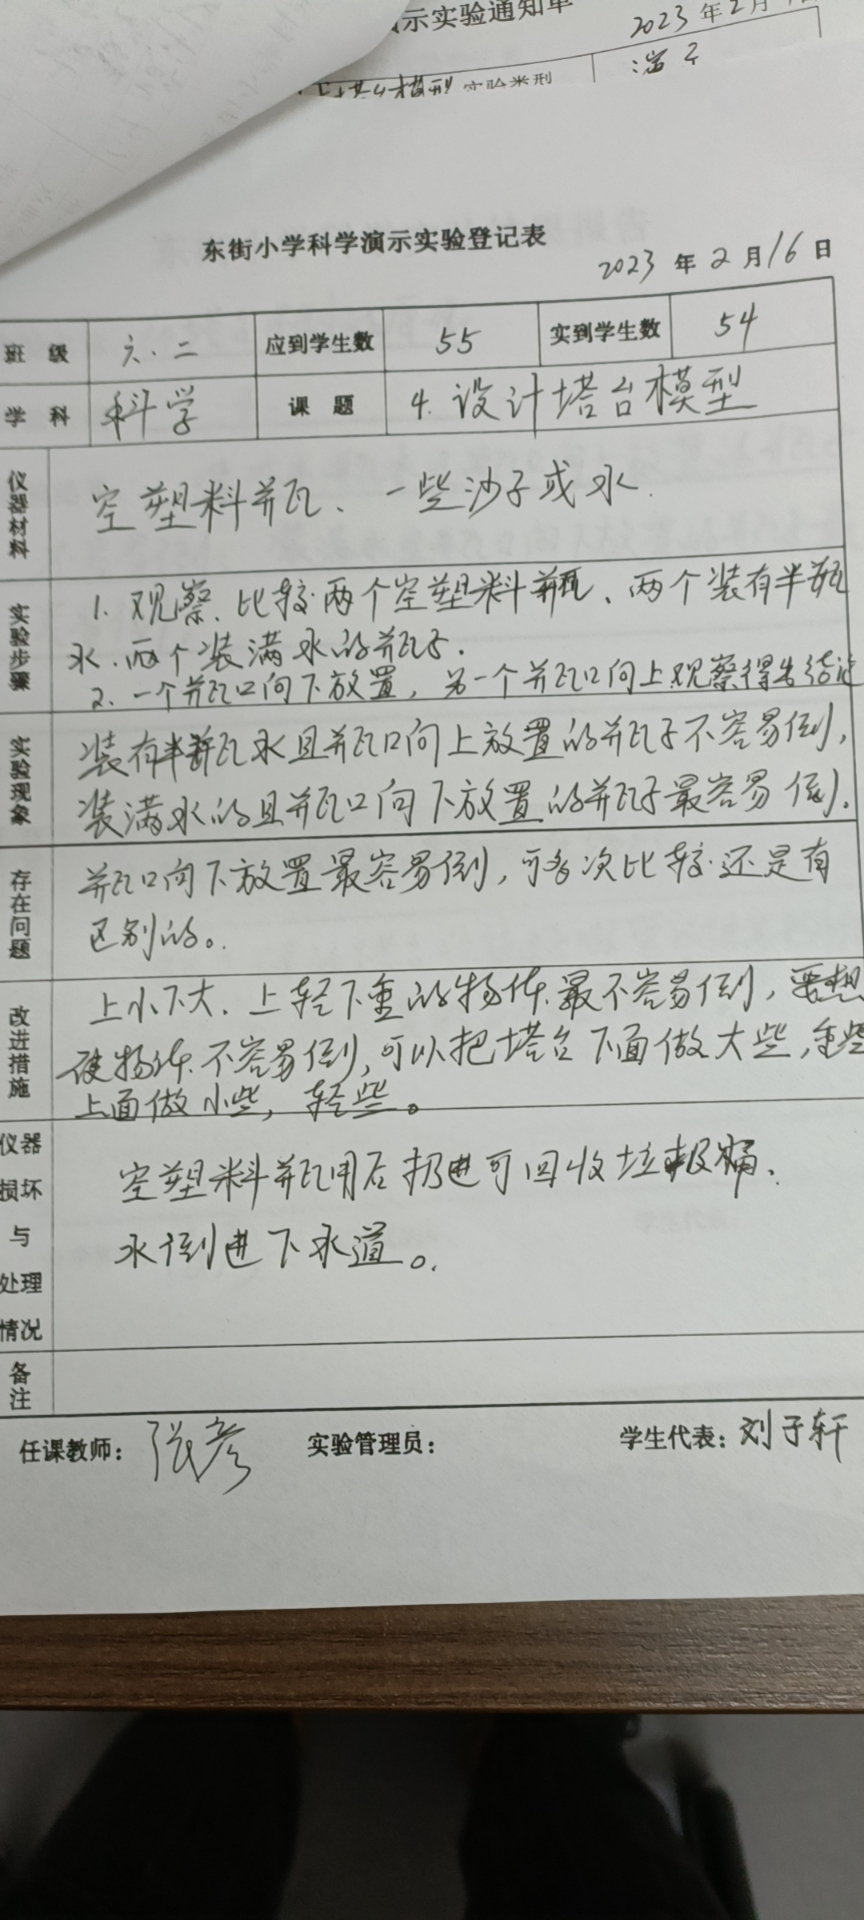 示实验通知单
2023年2月
模型 实验类型
演示
东街小学科学演示实验登记表
2023 年 2 月 16 日
班 级 六.二 应到学生数 55 实到学生数 54
学 科 科学 课 题 4.设计塔台模型
仪器材料 空塑料瓶、一些沙子或水.
实验步骤 1.观察、比较两个空塑料瓶、两个装有半瓶
水、两个装满水的瓶子.
2、一个瓶口向下放置，另一个瓶口向上观察得出结论
实验现象 装有半瓶水且瓶口向上放置的瓶子不容易倒，
装满水的且瓶口向下放置的瓶子最容易倒.
存在问题 瓶口向下放置最容易倒，可多次比较还是有
区别的。
改进措施 上小下大、上轻下重的物体最不容易倒，要想
使物体不容易倒，可以把塔台下面做大些，重些
上面做小些，轻些。
仪器损坏与处理情况 空塑料瓶用后扔进可回收垃圾桶.
水倒进下水道。
备注
任课教师：张彦 实验管理员： 学生代表：刘子轩